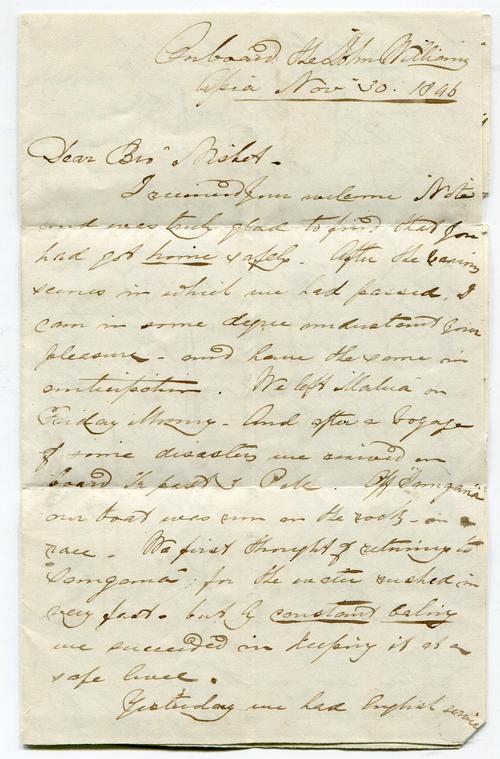 Onboard the John Williams
Apia Nov 30. 1846
Dear Bro Nisbet -
I received your welcome Note
and was truly glad to find that you
had got home safely. After the
scenes in which we had passed, I
can in some degree understand your
pleasure - and have the same in
anticipation. We left Malua on
Friday Morng - And after a voyage
of some disasters we arrived on
board ½ past 3 P.M. Off "Sangana"
our boat was run on the rocks - in a
race - We first thought of returning to
"Sangana", for the water rushed in
very fast - but by constant baling
we succeeded in keeping it at a
safe level.
Yesterday we had English service